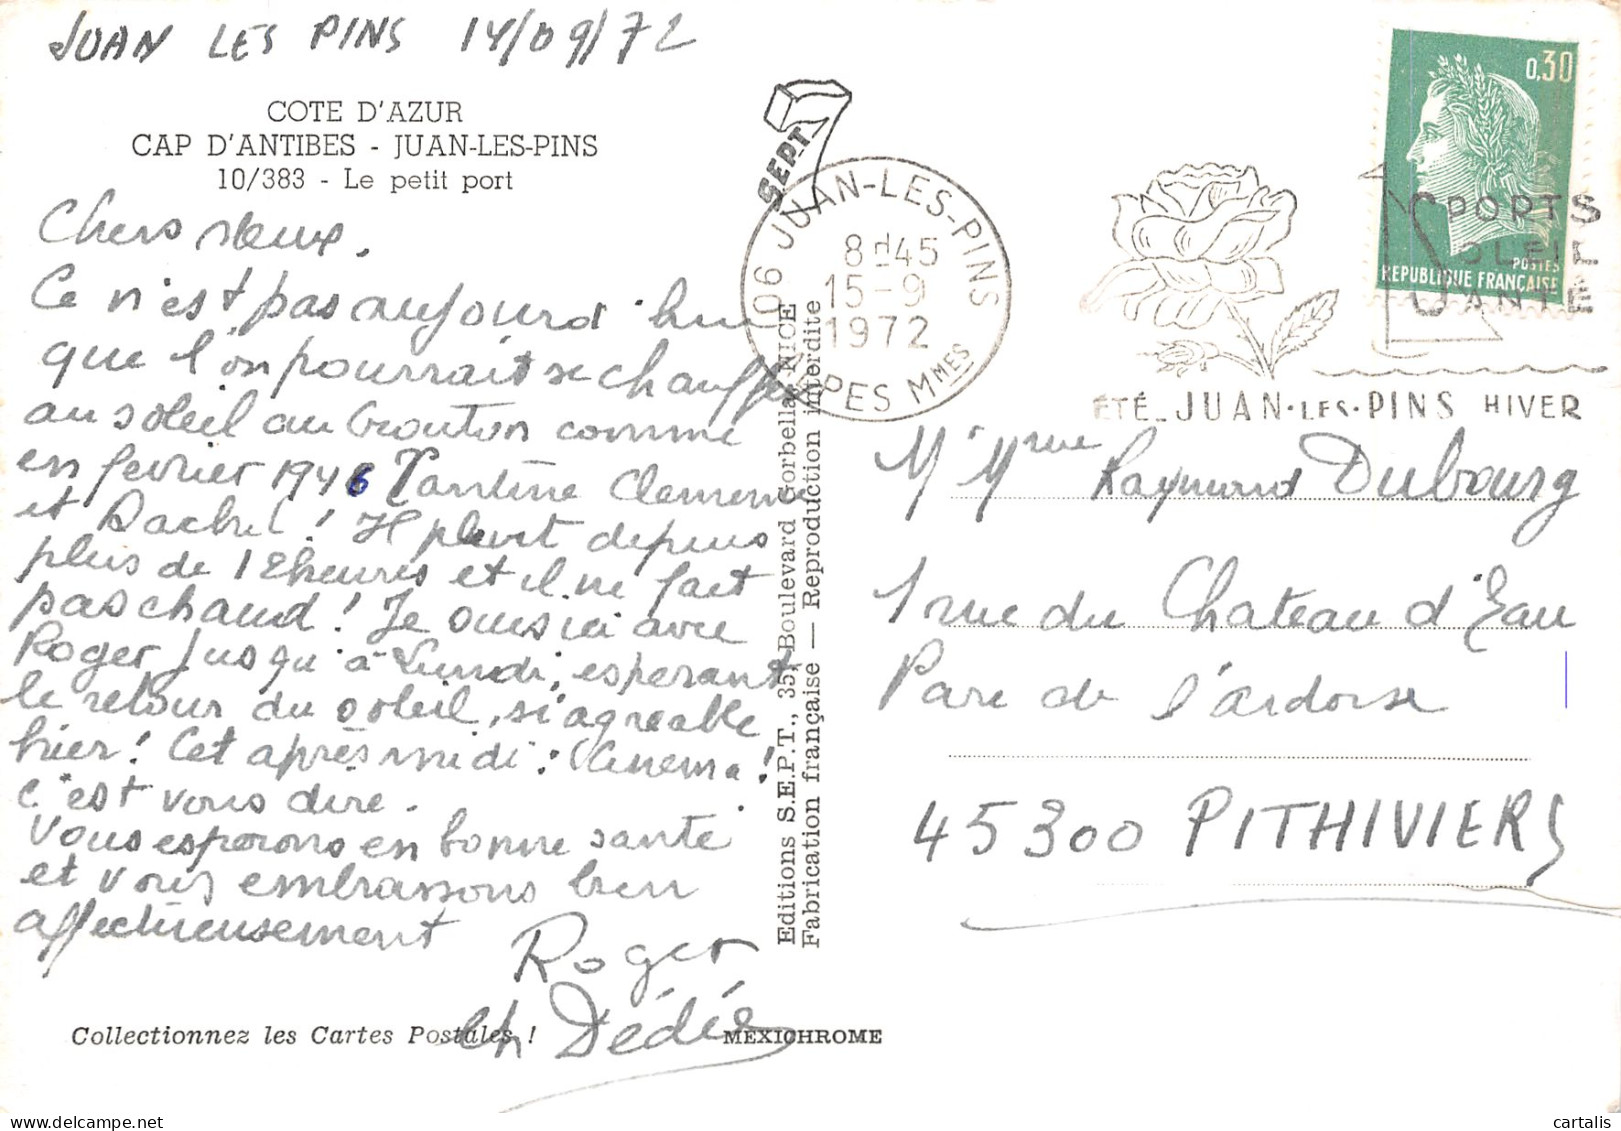 JUAN LES PINS 14/09/72
COTE D'AZUR
CAP D'ANTIBES - JUAN-LES-PINS
10/383 - Le petit port
Chers
Ce n'est pas aujourd'hui
que l'on pourrait se chauffer
au soleil au Crouton comme
en fevrier 1946 Tantine Clemence
et Rachel ! Il pleut depuis
plus de 12 heures et il ne fait
pas chaud ! Je suis ici avec
Roger jusqu'à Lundi, esperant
le retour du soleil, si agreable
hier ! Cet après midi : Cinema !
c'est vous dire.
Vous esperons en bonne santé
et vous embrassons bien
affectueusement
Roger
et Dédée
Collectionnez les Cartes Postales !
MEXICHROME
Editions S.E.P.T., 35, Boulevard Gorbella, NICE
Fabrication française — Reproduction interdite
SEPT
06 JUAN-LES-PINS
8H45
15-9
1972
ALPES MMES
SPORTS
SOLEIL
SANTE
ÉTÉ - JUAN·LES·PINS HIVER
0,30
POSTES
REPUBLIQUE FRANÇAISE
M. Mme Raymond Dubourg
1 rue du Chateau d'Eau
Parc de l'ardoise
45300 PITHIVIERS
cartalis